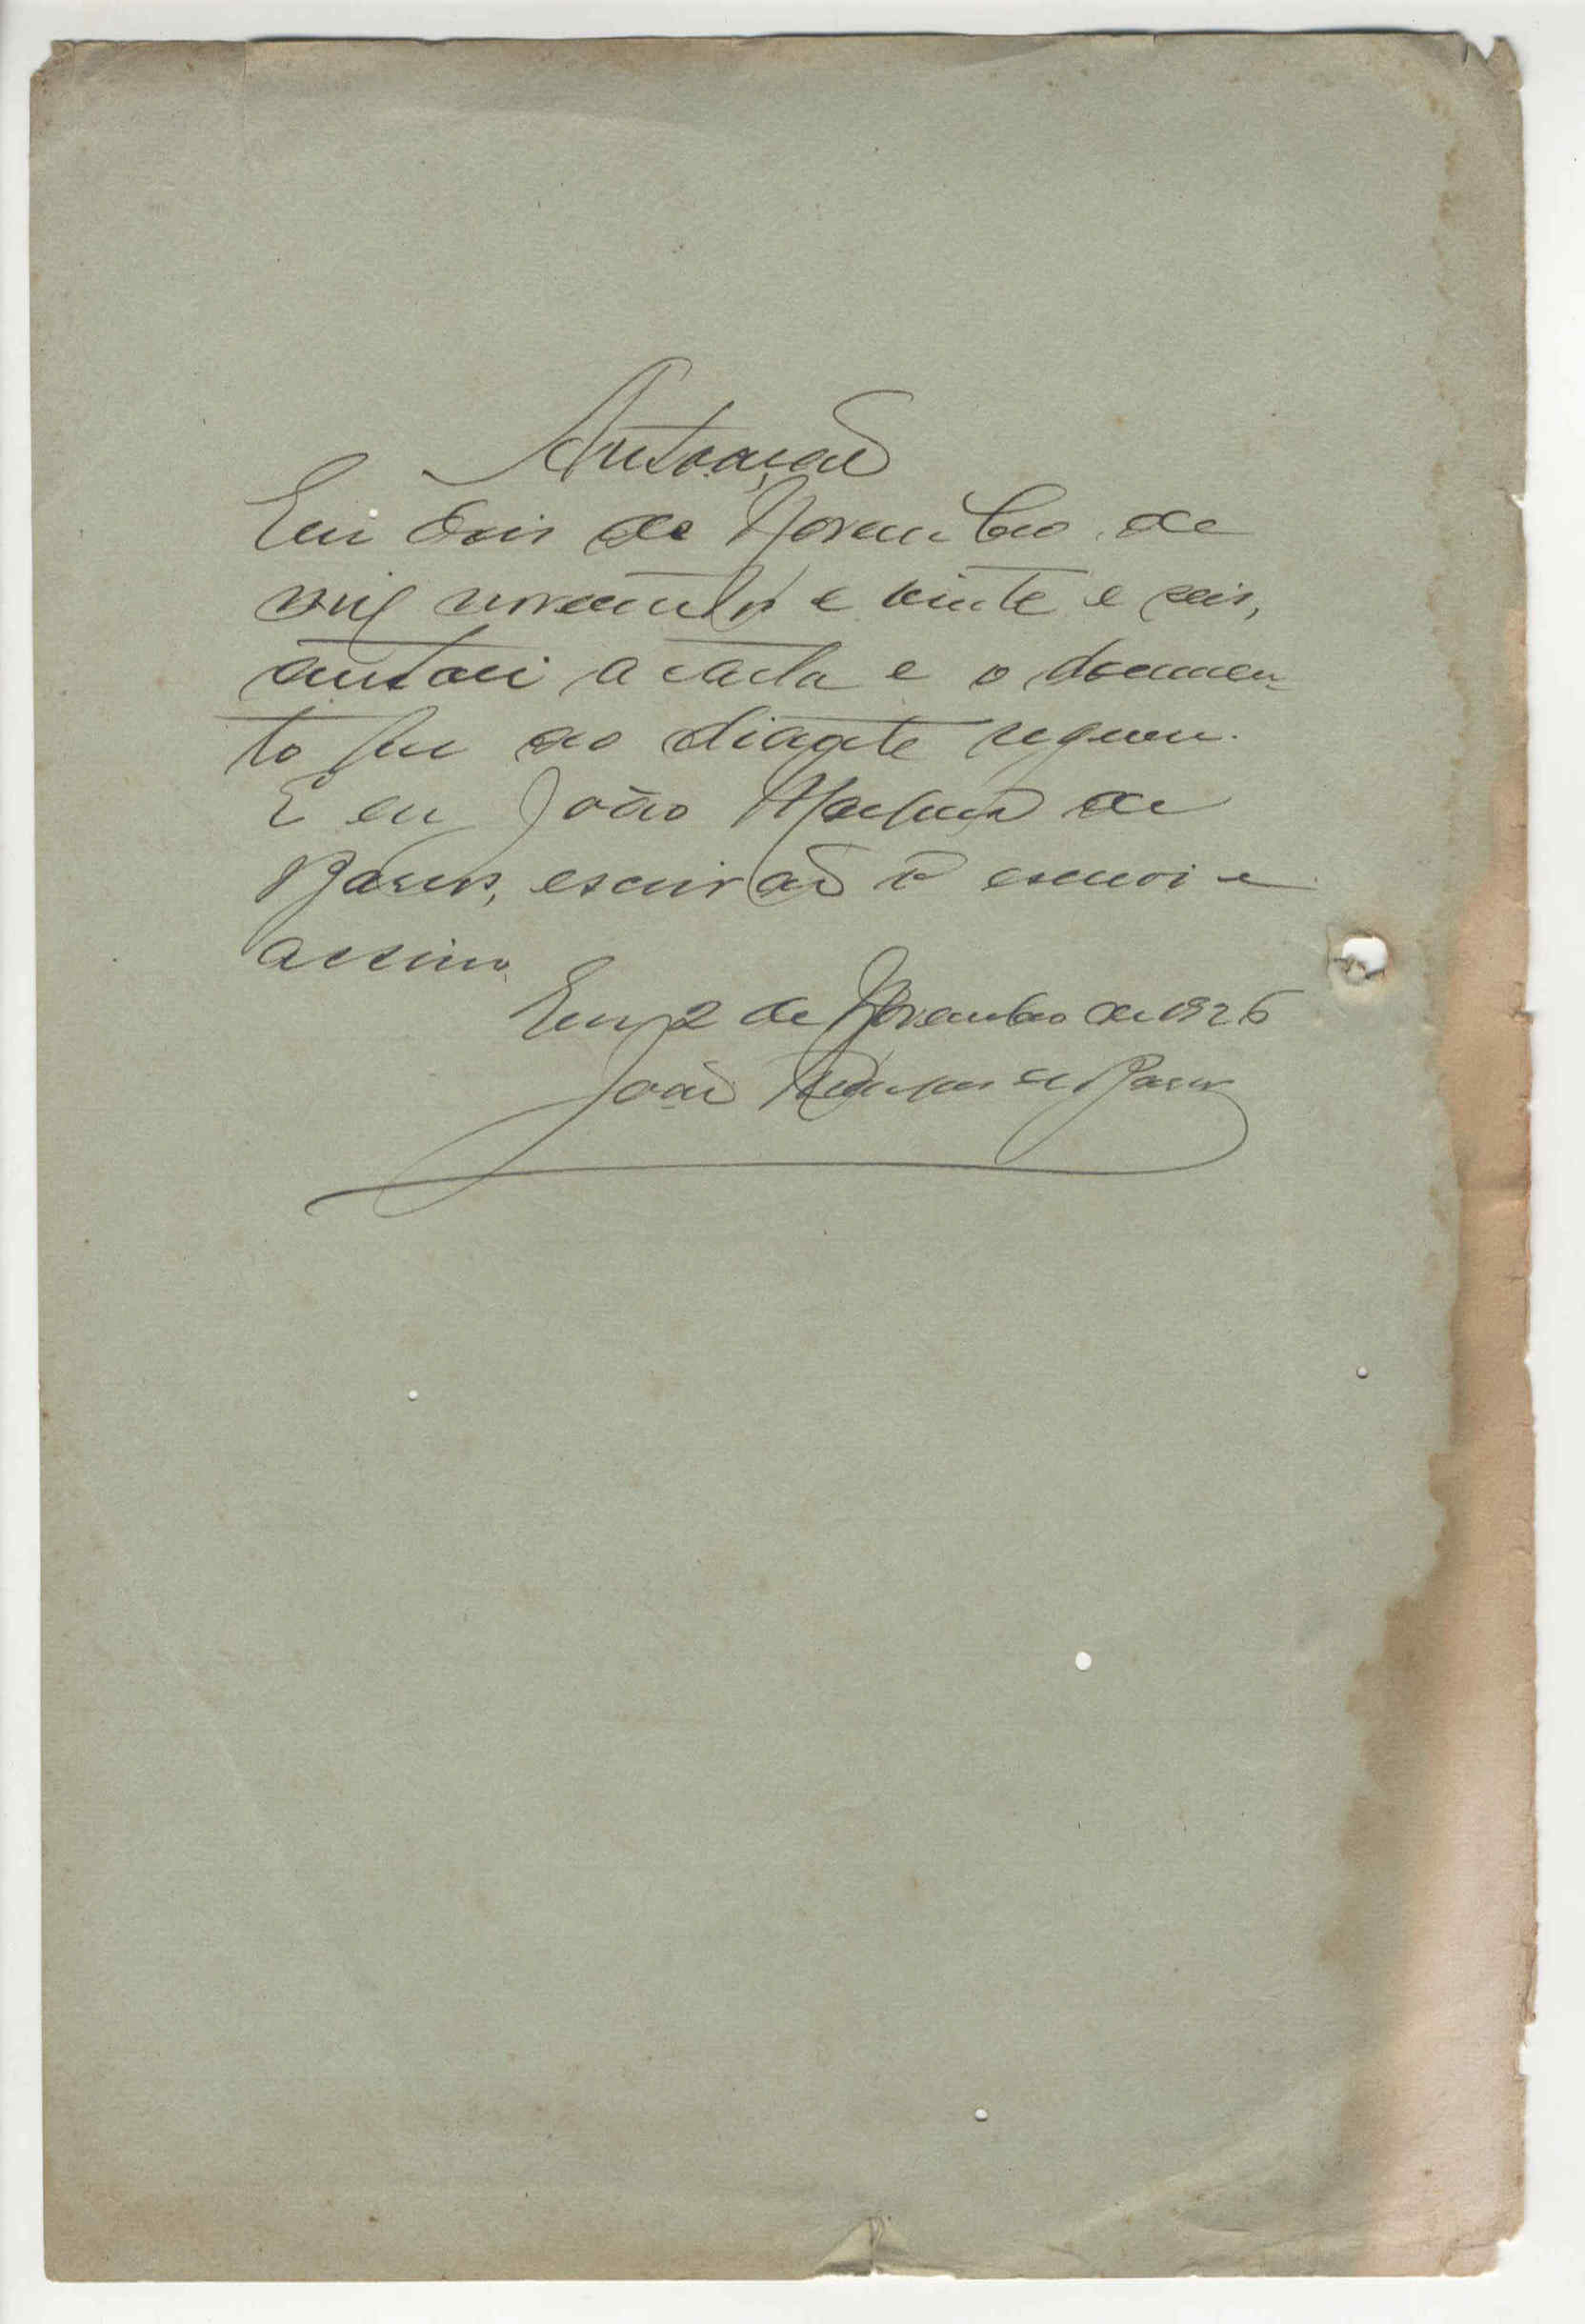 Autoação
Em dois de Novembro de
mil novecentos e vinte e seis,
autoei a carta e o documen-
to que ao diante seguem.
E eu João Marques de
Barros, escrivão o escrevi e
assino.
Em 2 de Novembro de 1926
João Marques de Barros